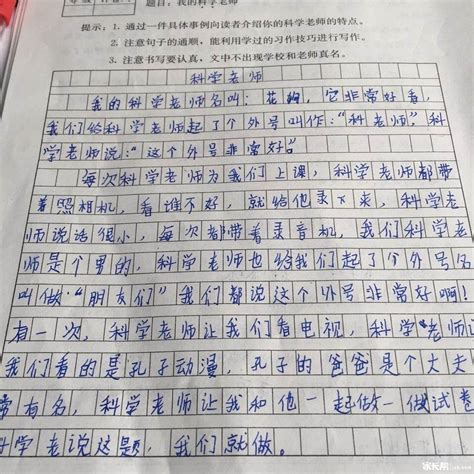 题目:我的科学老师
提示:1. 通过一件具体事例向读者介绍你的科学老师的特点。
2. 注意句子的通顺,能利用学过的习作技巧进行写作。
3. 注意书写要认真,文中不出现学校和老师真名。
科学老师
我的科学老师名叫:花狗,它非常好看,
我们给科学老师起了个外号叫作:“科老师”,科
学老师说:“这个外号非常好。”
每次科学老师为我们上课,科学老师都带
着照相机,看谁不好,就给他录下来,科学老
师说话很小,每次都带着录音机,我们科学老
师是个男的,科学老师也给我们起了个外号名
叫做“朋友们”我们都说这个外号非常好啊!
有一次,科学老师让我们看电视,科学老师让
我们看的是孔子动漫,孔子的爸爸是个大夫
常有名,科学老师让我和他一起做一做试卷
学老说这题,我们就做。